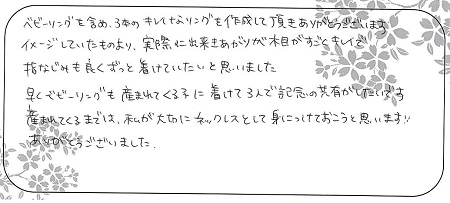 ベビーリングを含め、3本のキレイなリングを作成して頂きありがとうございます
イメージしていたものより、実際に出来きあがりが木目がすごくキレイで
指なじみも良くずっと着けていたいと思いました
早くベビーリングも産まれてくる子に着けて3人で記念の共有がしたいです
産まれてくるまでは、私が大切にネックレスとして身につけておこうと思います!!
ありがとうございました.